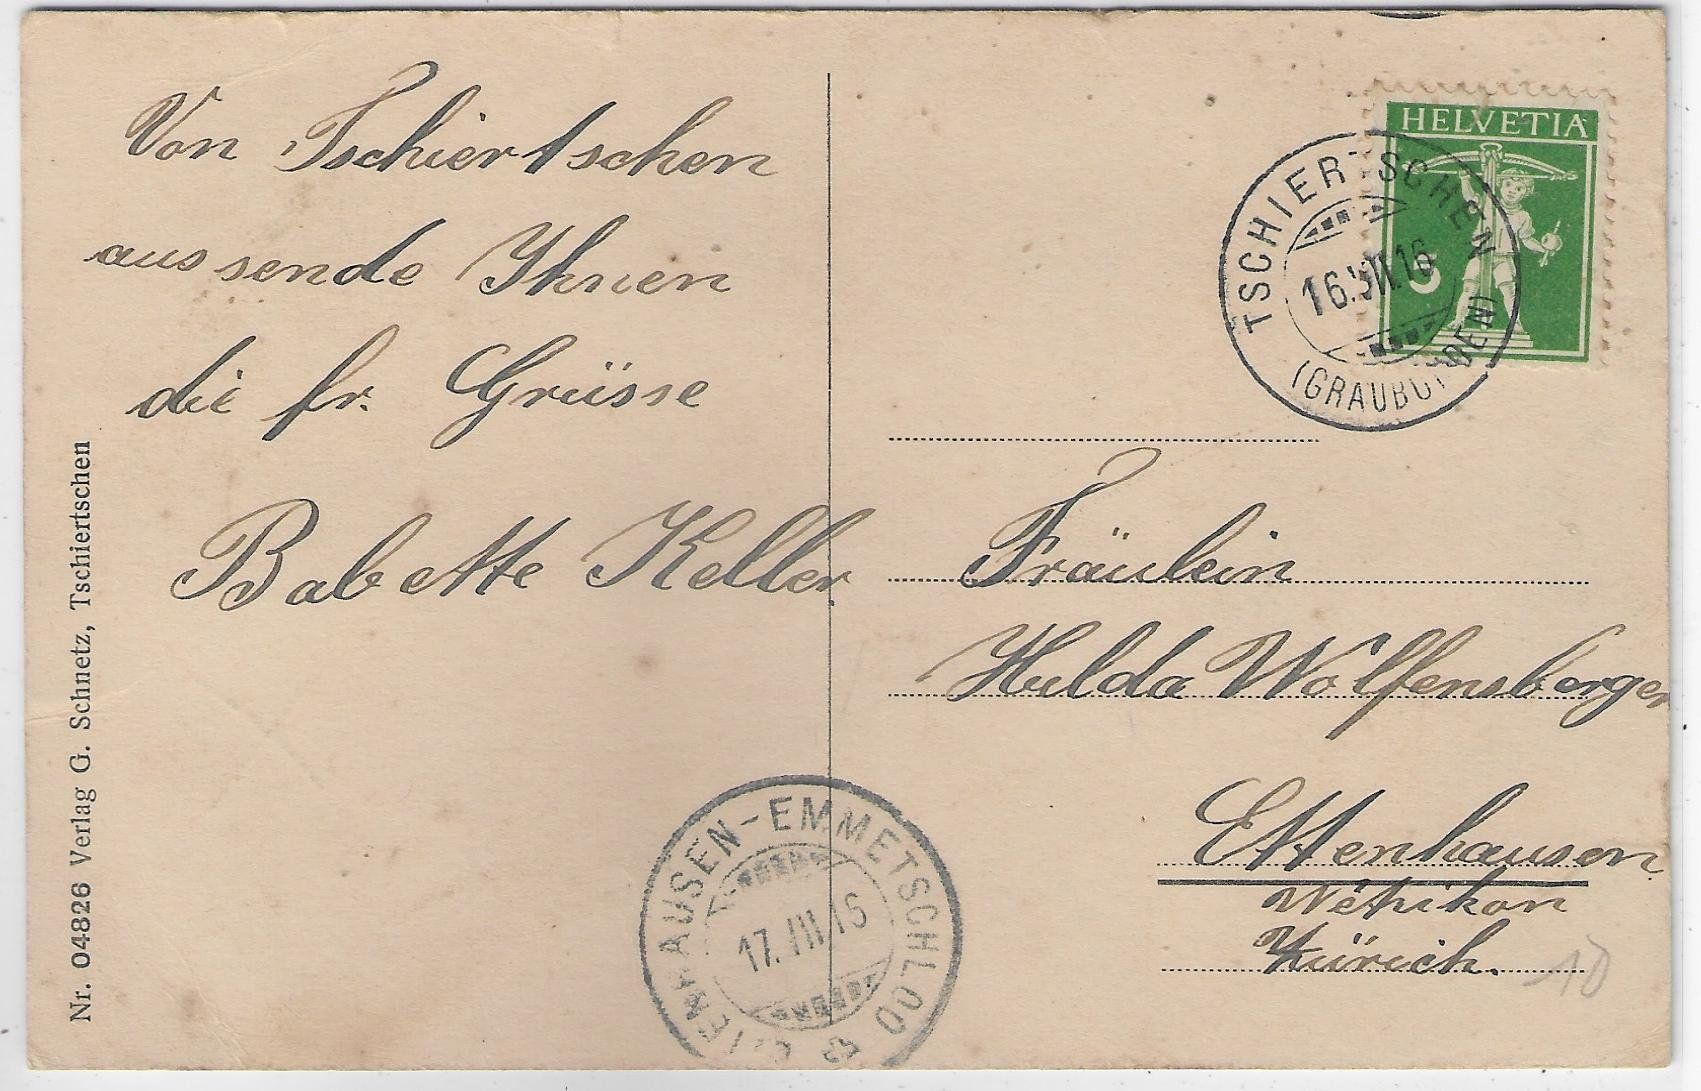 Von Tschiertschen
aus sende Ihnen
die fr. Grüsse
Babette Keller.
Nr. 04826 Verlag G. Schnetz, Tschiertschen
HELVETIA
5
TSCHIERTSCHEN
(GRAUBÜNDEN)
Fräulein
Hulda Wolfensberger
Ettenhausen
Wetzikon
Zürich.
10
ETTENHAUSEN-EMMETSCHLOO
17. III 16